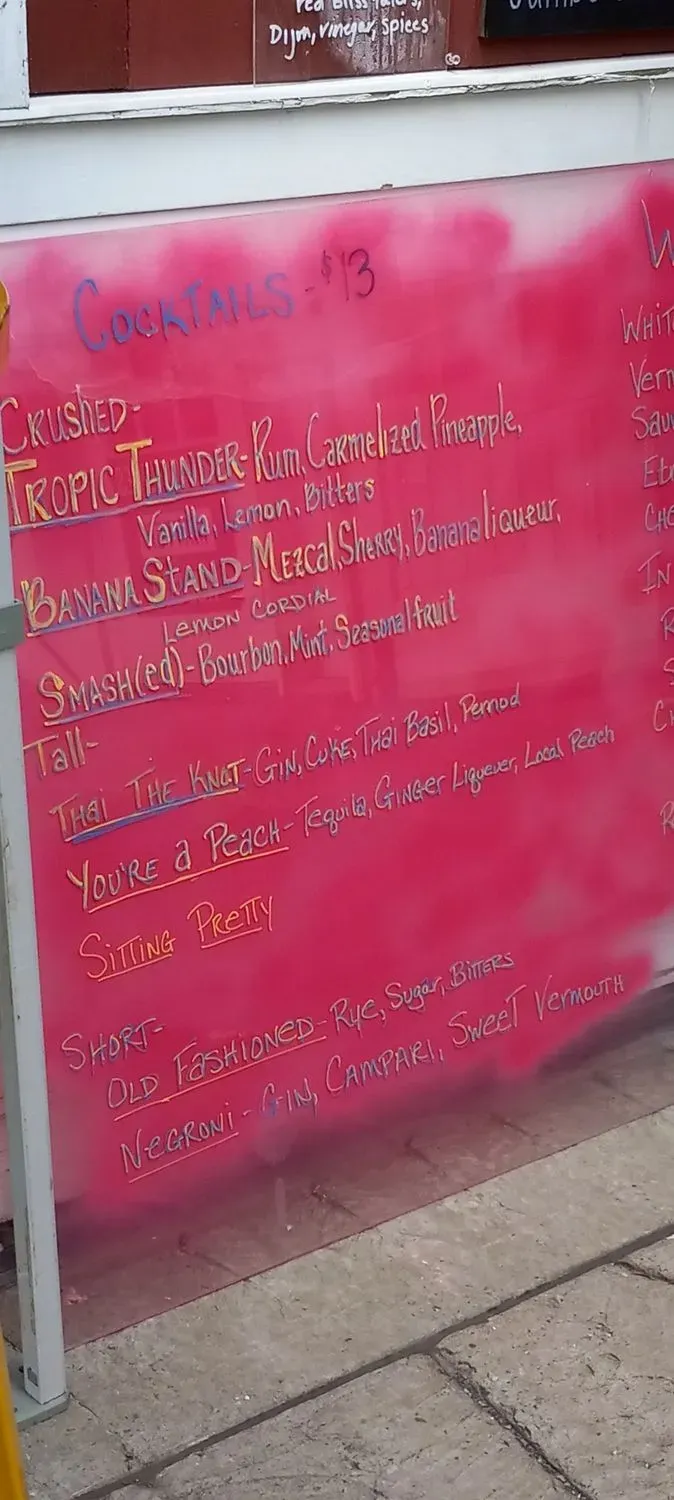 red Bliss
Dijm, vinegar, spices
COCKTAILS - $13
CRUSHED-
TROPIC THUNDER- Rum, Carmelized Pineapple,
Vanilla, Lemon, Bitters
BANANA STAND- Mezcal, Sherry, Banana liqueur,
Lemon CORDIAL
SMASH(ed)- Bourbon, Mint, Seasonal fruit
Tall-
THai THE KNOT- Gin, Cuke, Thai Basil, Pernod
YOU'RE a PEACH- Tequila, Ginger Liqueur, Local Peach
SITTING PRETTY
SHORT-
OLD FASHIONED- Rye, Sugar, BITTERS
NeGRONi - GIN, CAMPARI, SWEET VERMOUTH
W
WHIT
Verm
Sau
Et
CHE
IN
R
S
CH
R